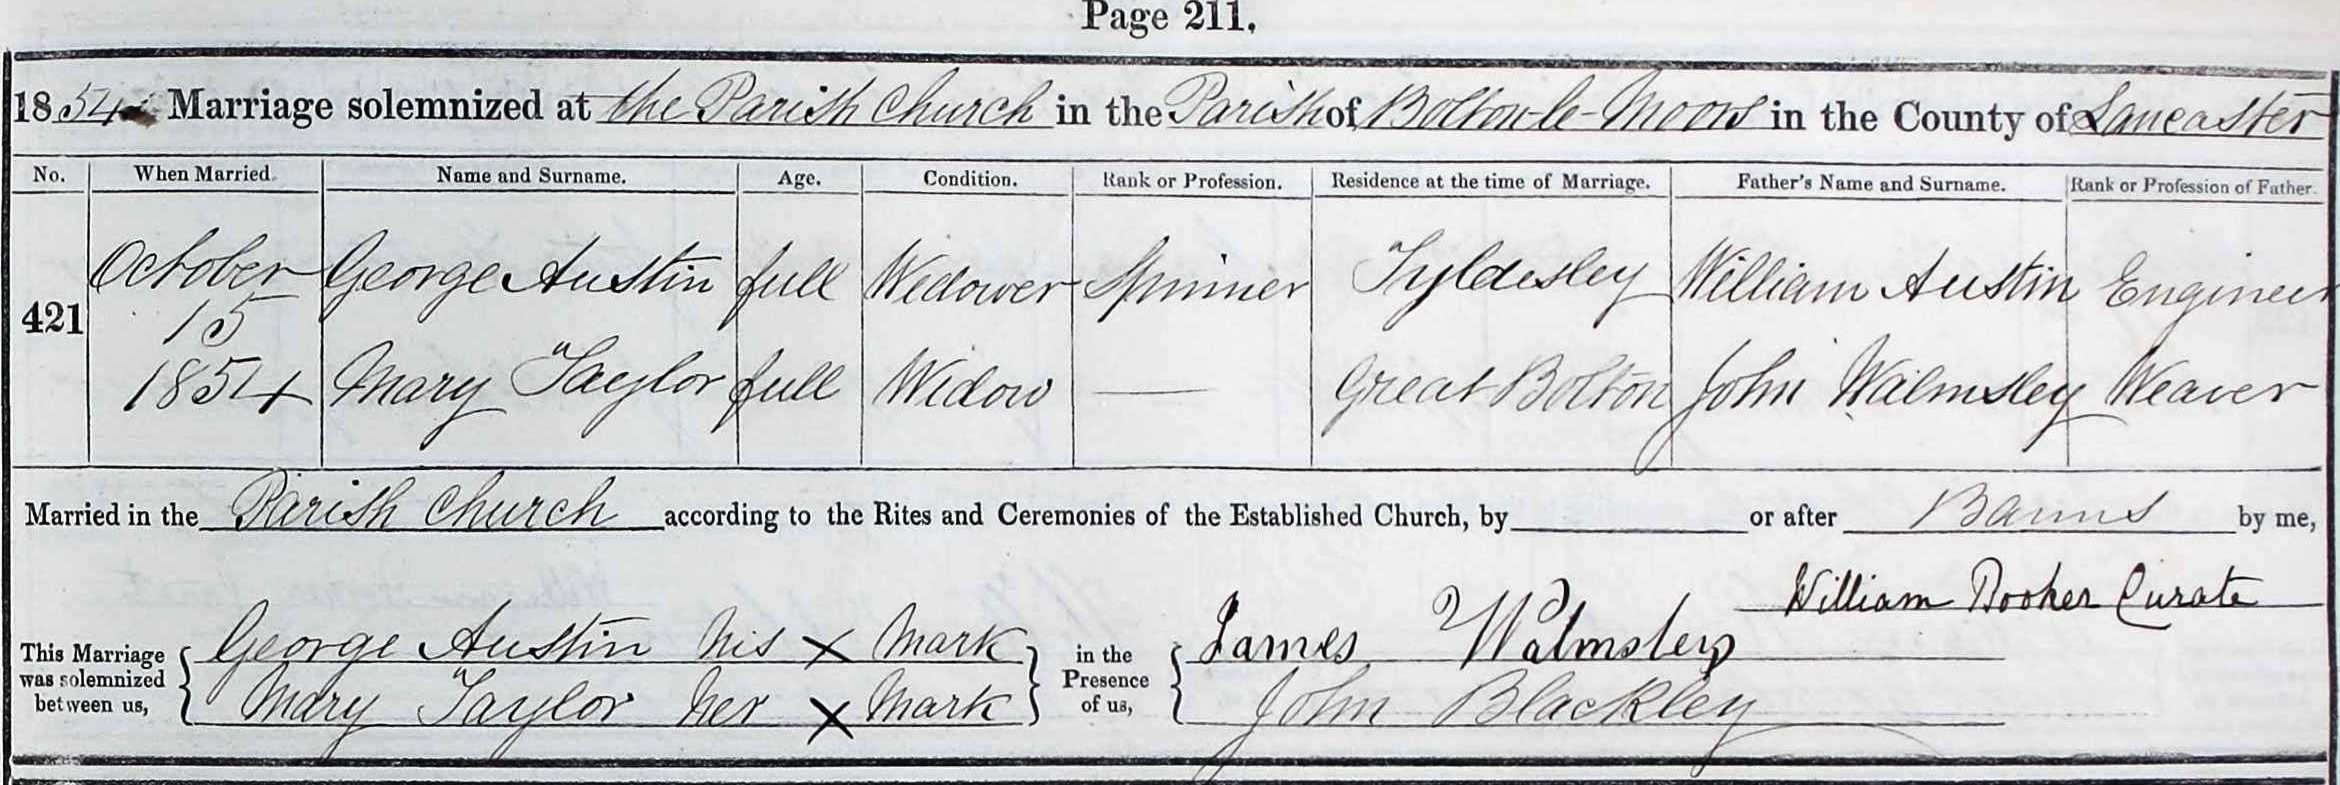 Page 211.
1854 Marriage solemnized at the Parish Church in the Parish of Bolton-le-Moors in the County of Lancaster
No. When Married. Name and Surname. Age. Condition. Rank or Profession. Residence at the time of Marriage. Father's Name and Surname. Rank or Profession of Father.
October George Austin full Widower Spinner Tyldesley William Austin Engineer
421 15
1854 Mary Taylor full Widow — Great Bolton John Walmsley Weaver
Married in the Parish Church according to the Rites and Ceremonies of the Established Church, by or after Banns by me,
William Booker Curate
This Marriage was solemnized between us, { George Austin his X Mark } in the Presence of us, { James Walmsley
Mary Taylor her X Mark John Blackley